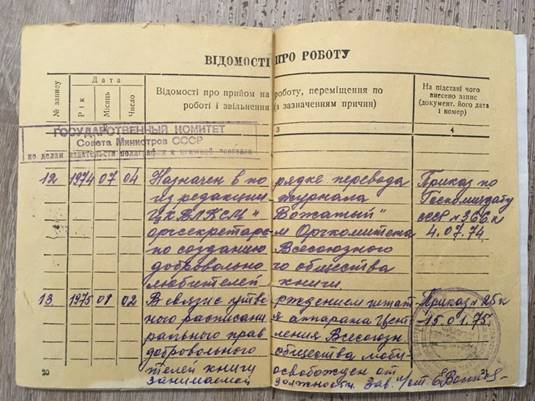 ВІДОМОСТІ ПРО РОБОТУ
№ запису
Дата
Рік
Місяць
Число
Відомості про прийом на роботу, переміщення по
роботі і звільнення (з зазначенням причин)
На підставі чого
внесено запис
(документ, його дата
і номер)
3
4
ГОСУДАРСТВЕННЫЙ КОМИТЕТ
Совета Министров СССР
по делам издательств полиграфии и книжной торговли
12 1974 07 04 Назначен в порядке перевода Приказ по
из редакции журнала Госкомиздату
ЦК ВЛКСМ "Вожатый" СССР № 366к
оргсекретарем Оргкомитета 4.07.74.
по созданию Всесоюзного
добровольного общества
любителей книги.
13 1975 01 02 В связи с утверждением штат- Приказ № 25к
ного расписания аппарата Цент- 15.01.75.
рального правления Всесоюзн
добровольного общества люби-
телей книги освобожден от
занимаемой должности. Зав.
20